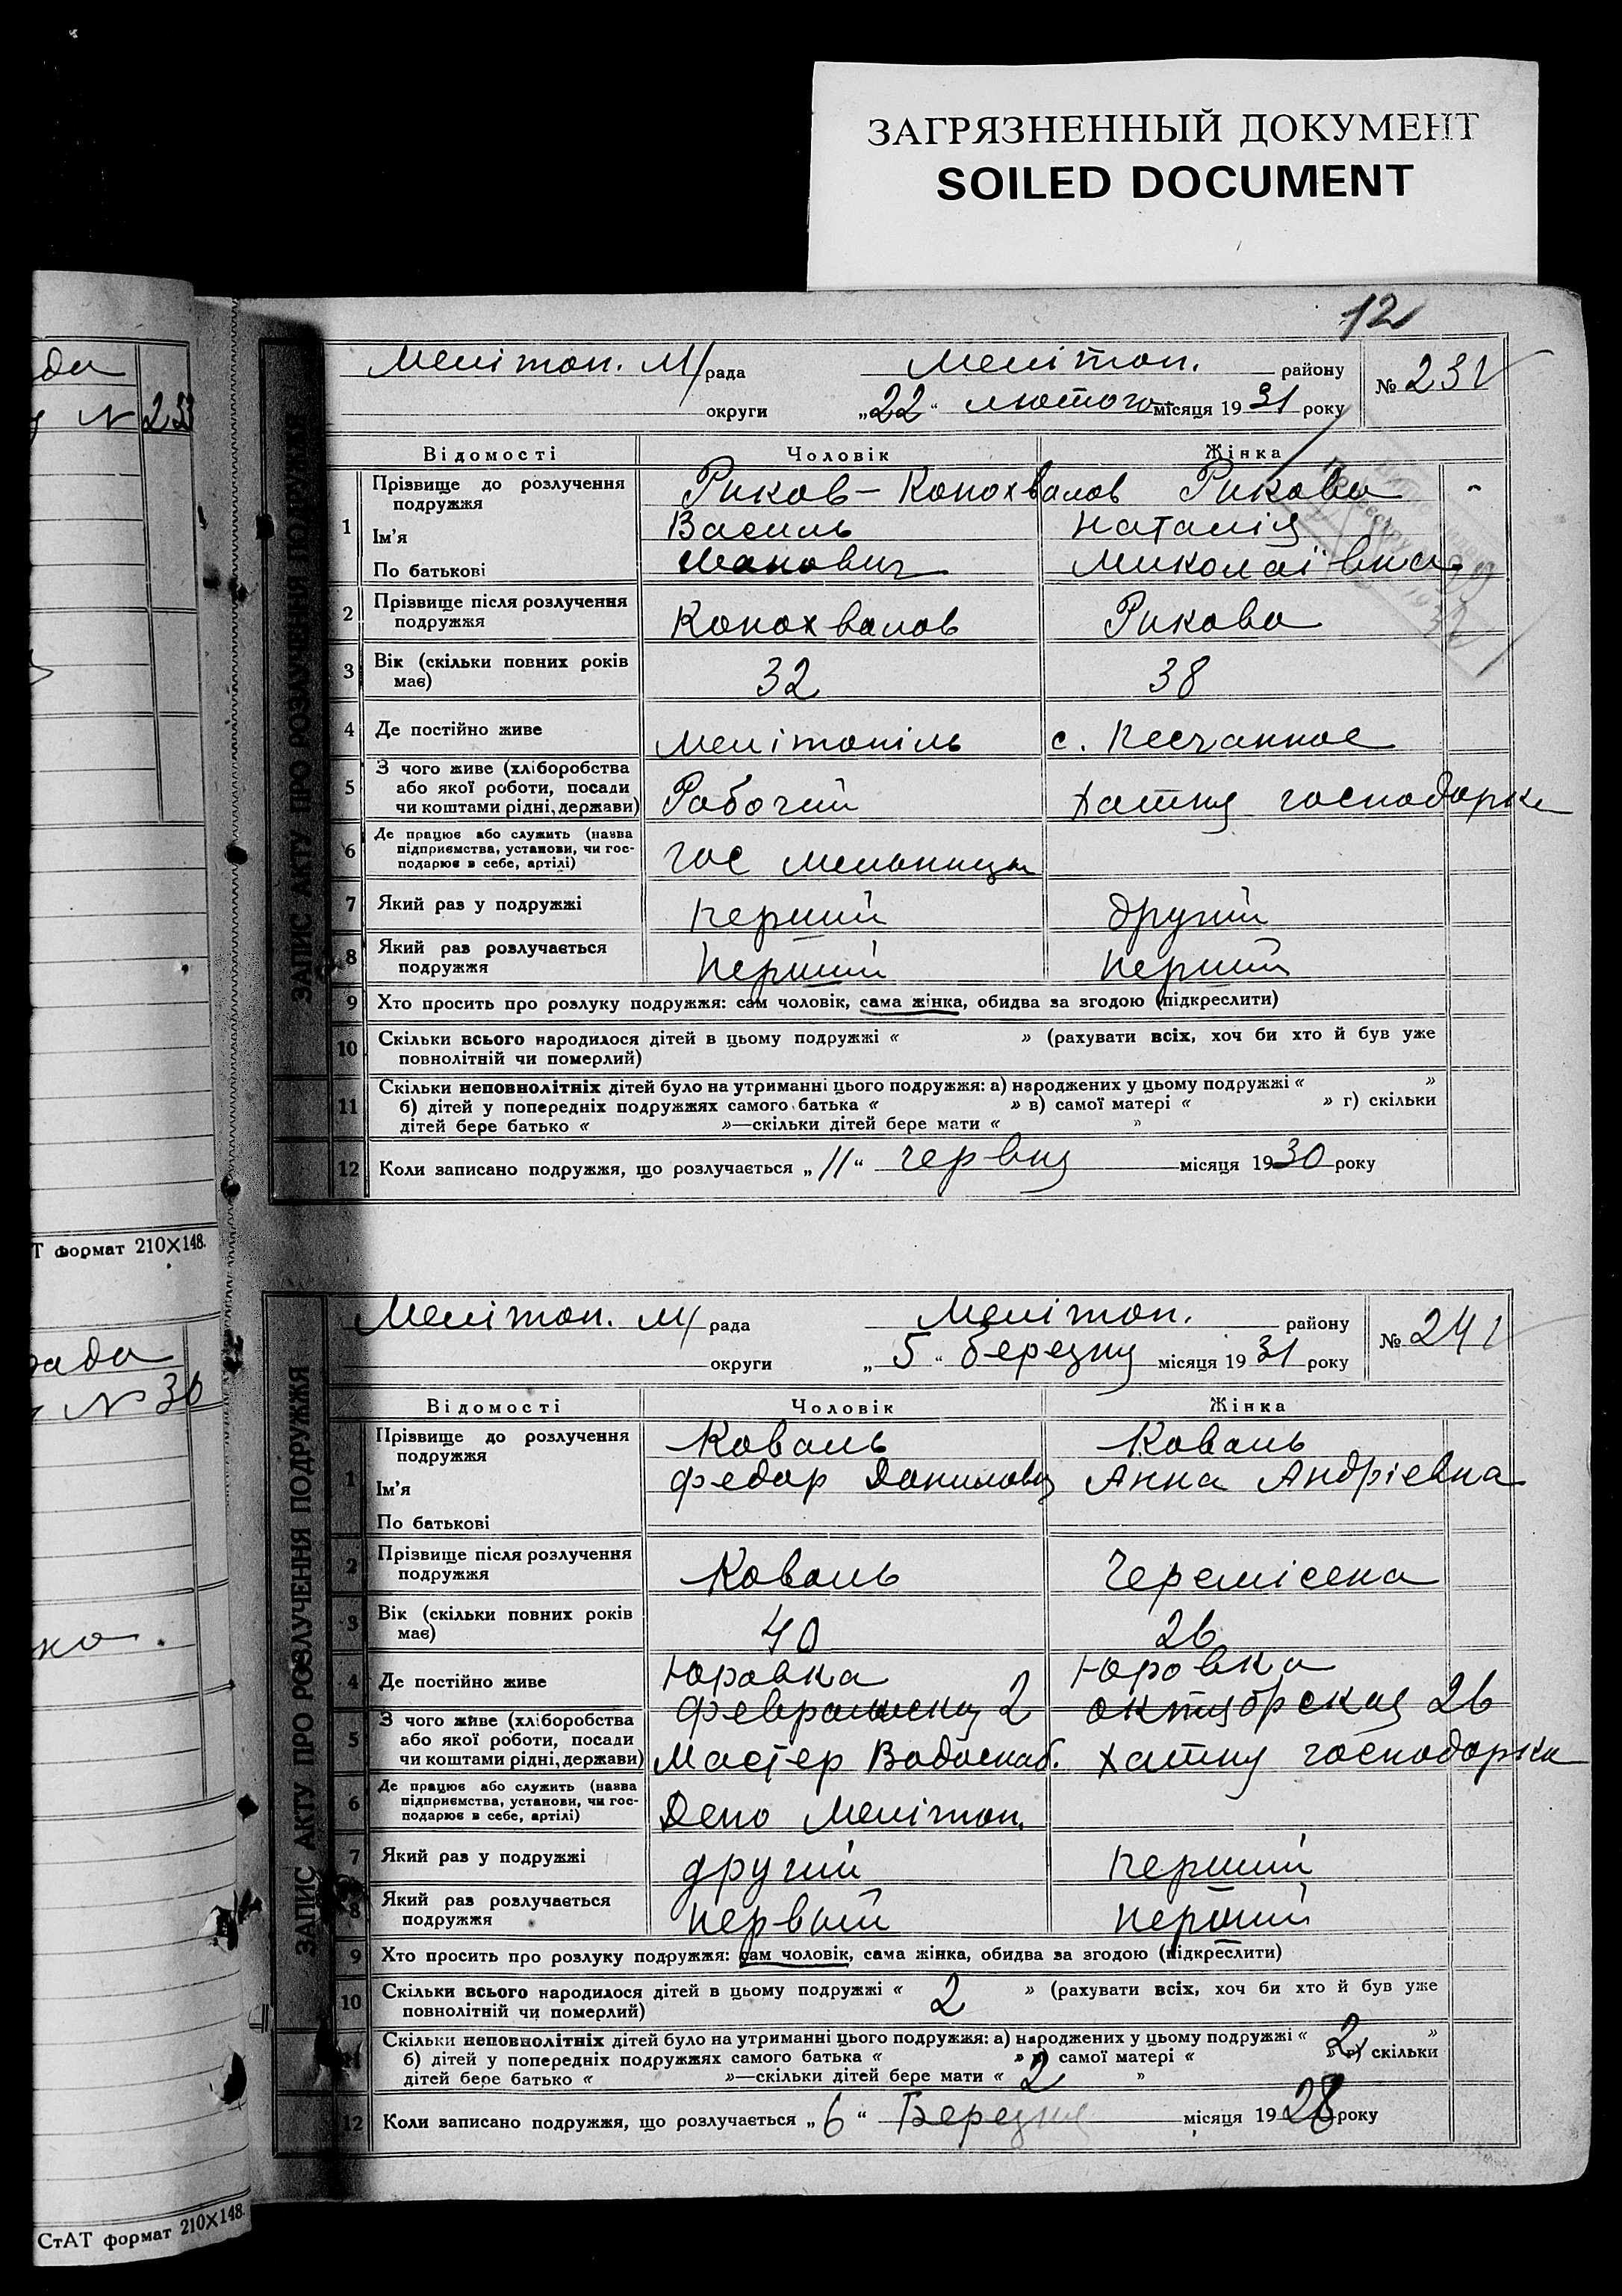 ЗАГРЯЗНЕННЫЙ ДОКУМЕНТ
SOILED DOCUMENT
12
ЗАПИС АКТУ ПРО РОЗЛУЧЕННЯ ПОДРУЖЖЯ
Мелітоп. М/рада Мелітоп. району № 231
округи „22“ лютого місяця 1931 року
Відомості Чоловік Жінка
1 Прізвище до розлучення подружжя Риков-Конохвалов Рикова
Ім'я Василь Наталія
По батькові Миколаївна
2 Прізвище після розлучення подружжя Конохвалов Рикова
3 Вік (скільки повних років має) 32 38
4 Де постійно живе Мелітопіль с. Песчанное
5 З чого живе (хліборобства або якої роботи, посади чи коштами рідні, держави) Рабочий Хатня господарка
6 Де працює або служить (назва підприємства, установи, чи господарює в себе, артілі) гос мельница
7 Який раз у подружжі перший другий
8 Який раз розлучається подружжя перший перший
9 Хто просить про розлуку подружжя: сам чоловік, сама жінка, обидва за згодою (підкреслити)
10 Скільки всього народилося дітей в цьому подружжі « » (рахувати всіх, хоч би хто й був уже
повнолітній чи померлий)
11 Скільки неповнолітніх дітей було на утриманні цього подружжя: а) народжених у цьому подружжі « »
б) дітей у попередніх подружжях самого батька « » в) самої матері « » г) скільки
дітей бере батько « »—скільки дітей бере мати « »
12 Коли записано подружжя, що розлучається „11“ червня місяця 1930 року
Т формат 210×148.
ЗАПИС АКТУ ПРО РОЗЛУЧЕННЯ ПОДРУЖЖЯ
Мелітоп. М/рада Мелітоп. району № 241
округи „5“ березня місяця 1931 року
Відомості Чоловік Жінка
1 Прізвище до розлучення подружжя Коваль Коваль
Ім'я Федор Данилович Анна Андрієвна
По батькові
2 Прізвище після розлучення подружжя Коваль Черемісена
3 Вік (скільки повних років має) 40 26
4 Де постійно живе Юровка Февральская 2 Юровка Октябрская 26
5 З чого живе (хліборобства або якої роботи, посади чи коштами рідні, держави) Мастер Водоснаб. Хатня господарка
6 Де працює або служить (назва підприємства, установи, чи господарює в себе, артілі) Депо Мелітоп.
7 Який раз у подружжі другий перший
8 Який раз розлучається подружжя первый перший
9 Хто просить про розлуку подружжя: сам чоловік, сама жінка, обидва за згодою (підкреслити)
10 Скільки всього народилося дітей в цьому подружжі « 2 » (рахувати всіх, хоч би хто й був уже
повнолітній чи померлий)
11 Скільки неповнолітніх дітей було на утриманні цього подружжя: а) народжених у цьому подружжі « 2 »
б) дітей у попередніх подружжях самого батька « » в) самої матері « » г) скільки
дітей бере батько « »—скільки дітей бере мати « 2 »
12 Коли записано подружжя, що розлучається „6“ Березня місяця 1928 року
СтАТ формат 210×148.